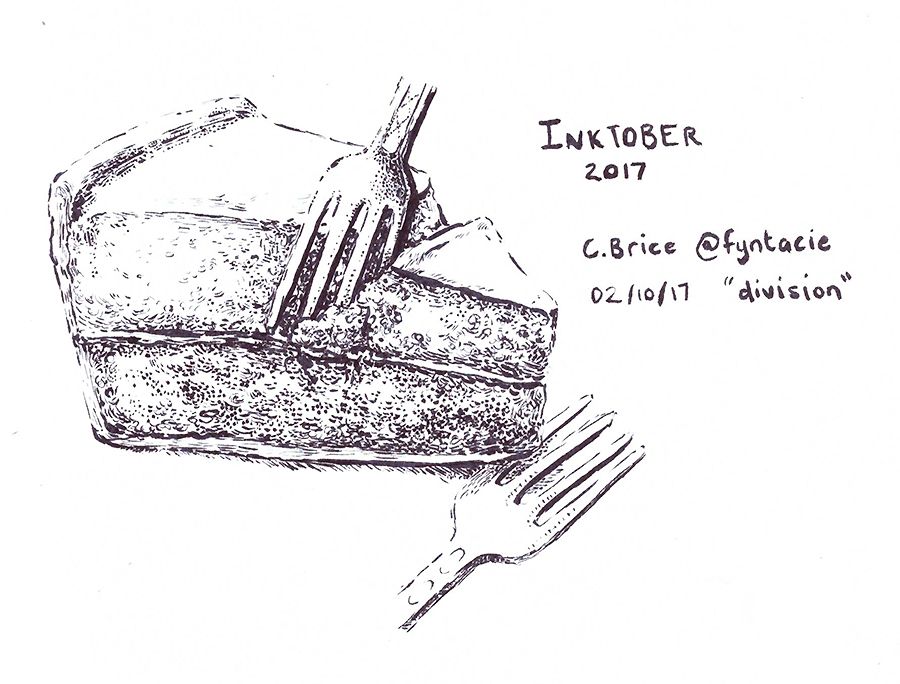 INKTOBER
2017
C.Brice @fyntacie
02/10/17 "division"